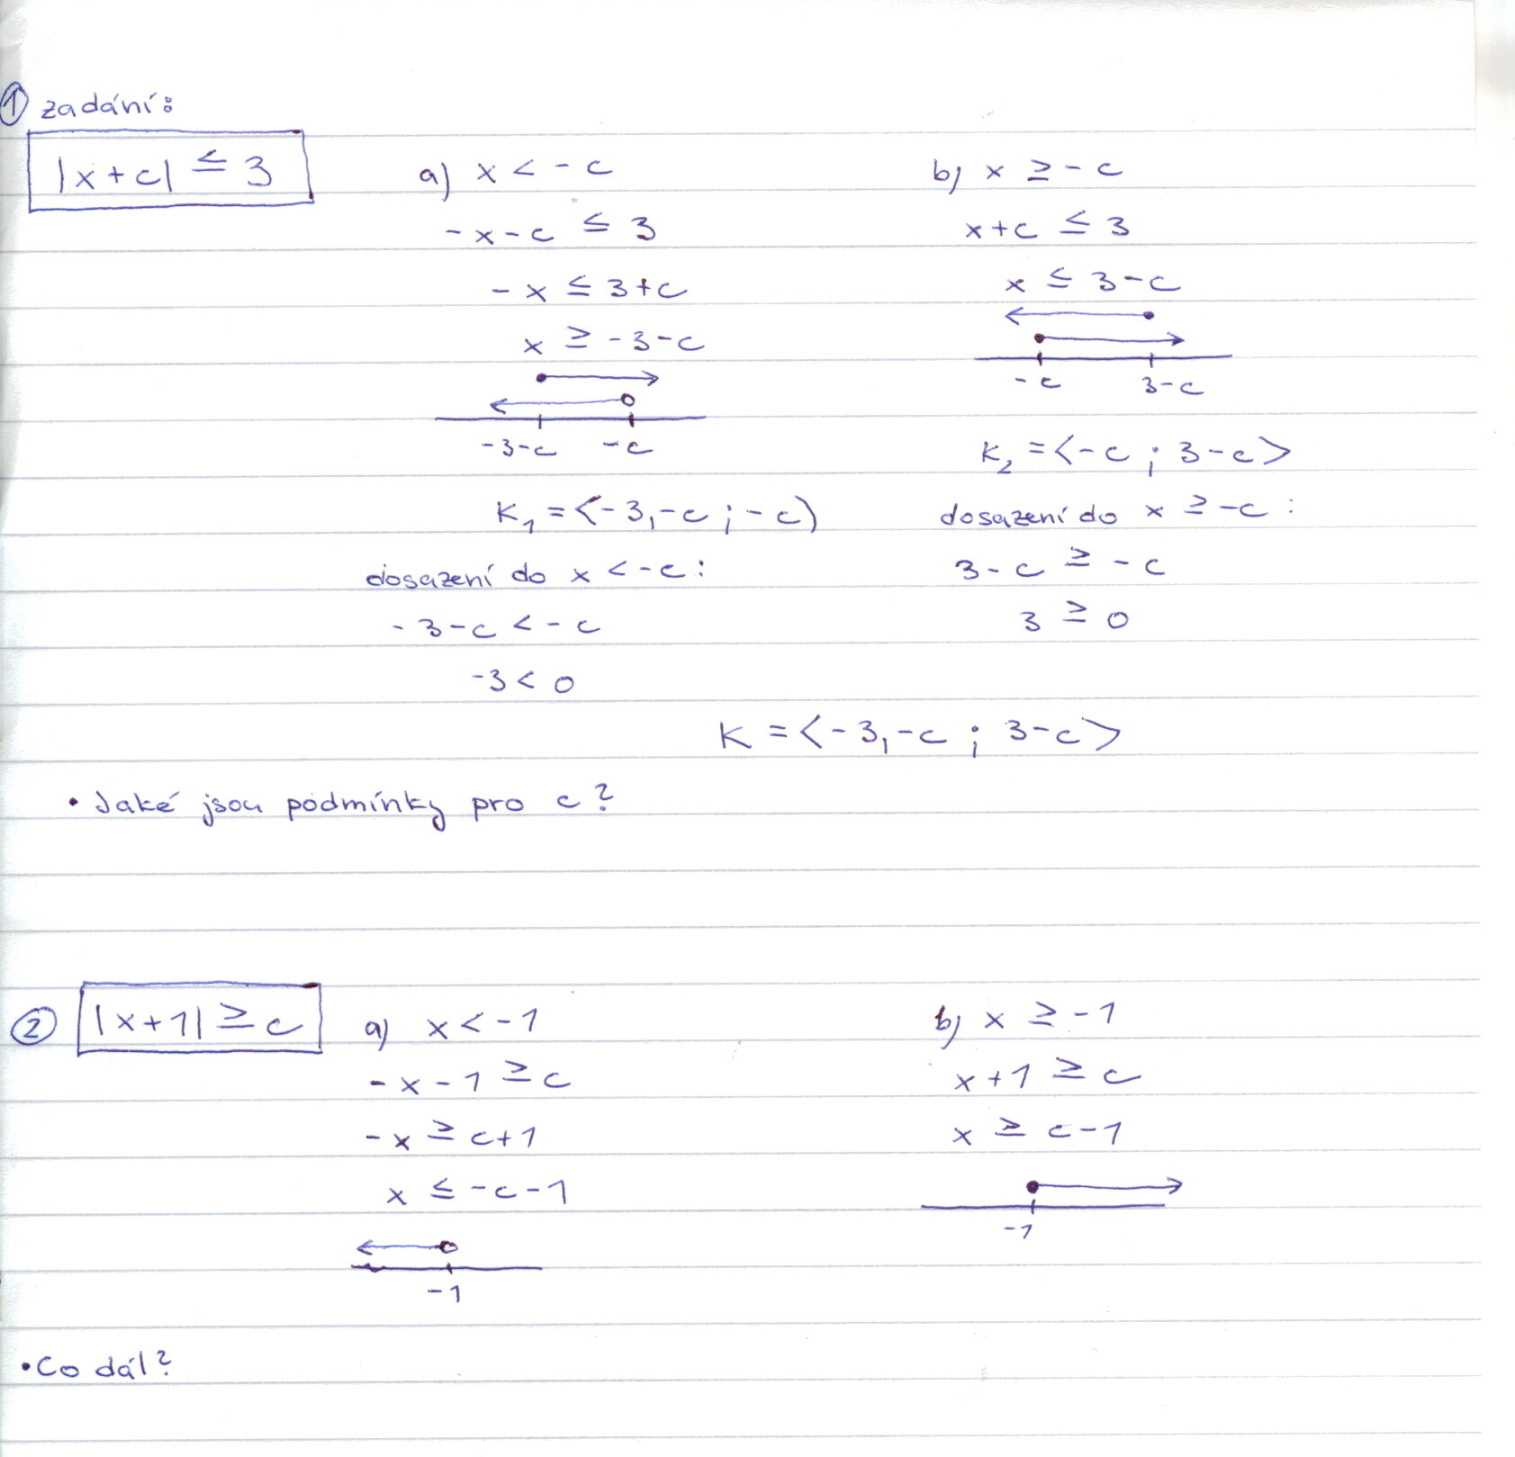 ① zadání:
|x+c| ≤ 3
a) x < -c
-x-c ≤ 3
-x ≤ 3+c
x ≥ -3-c
-3-c -c
K₁ = <-3,-c ; -c)
dosazení do x < -c:
-3-c < -c
-3 < 0
b) x ≥ -c
x+c ≤ 3
x ≤ 3-c
-c 3-c
K₂ = <-c ; 3-c>
dosazení do x ≥ -c:
3-c ≥ -c
3 ≥ 0
K = <-3,-c ; 3-c>
• Jaké jsou podmínky pro c?
② |x+1| ≥ c
a) x < -1
-x-1 ≥ c
-x ≥ c+1
x ≤ -c-1
-1
b) x ≥ -1
x+1 ≥ c
x ≥ c-1
-1
• Co dál?